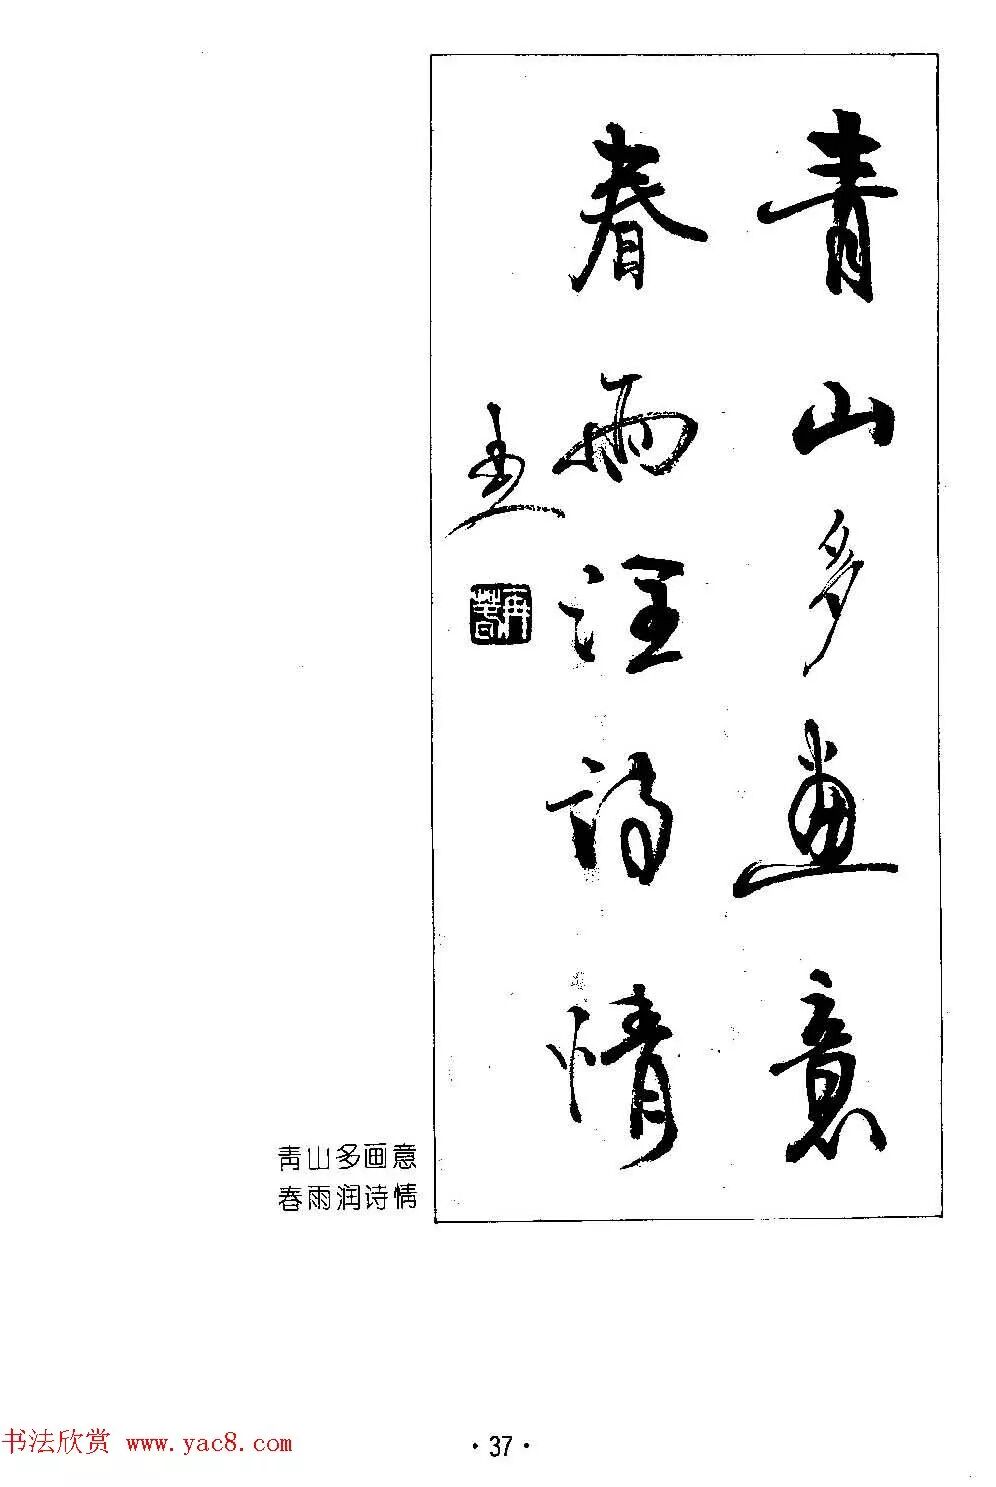 青山多畫意
春雨潤詩情
青山多画意
春雨润诗情
书法欣赏 www.yac8.com
· 37 ·